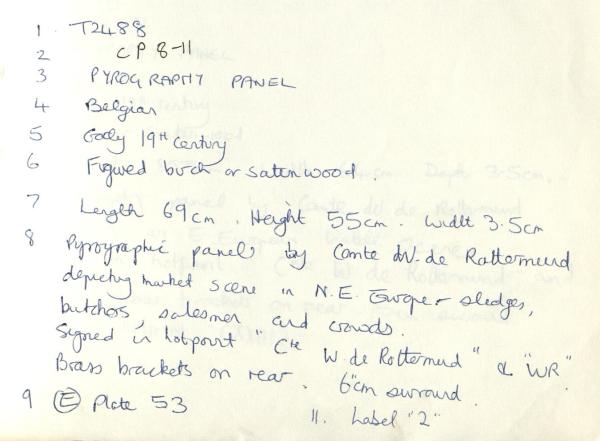 1 T2488
2 CP 8-11
3 PYROGRAPHY PANEL
4 Belgian
5 Early 19th Century
6 Figured birch or satin wood.
7 Length 69cm. Height 55cm. Width 3.5cm
8 Pyrographic panel by Comte W. de Rottermund
depicting market scene in N.E. Europe - sledges,
butchers, salesmen and crowds.
Signed in hotpoint "Cte W. de Rottermund" & "WR".
Brass brackets on rear. 6"cm surround.
9 (E) Plate 53
11. Label "2"